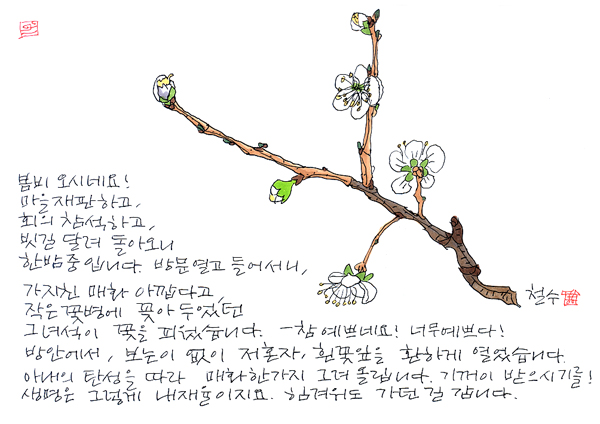 봄비 오시네요!
마을재판하고,
회의 참석하고,
빗길 달려 돌아오니
한밤중입니다. 방문 열고 들어서니,
가지친 매화 아깝다고,
작은 꽃병에 꽂아 두었던
그녀석이 꽃을 피웠습니다. -참 예쁘네요! 너무예쁘다!
방안에서, 보는이 없이 저혼자, 흰꽃잎을 환하게 열었습니다.
아내의 탄성을 따라 매화한가지 그려 올립니다. 기꺼이 받으시기를!
생명은 그렇게 내재율이지요. 힘겨워도 가던길 갑니다.
철수